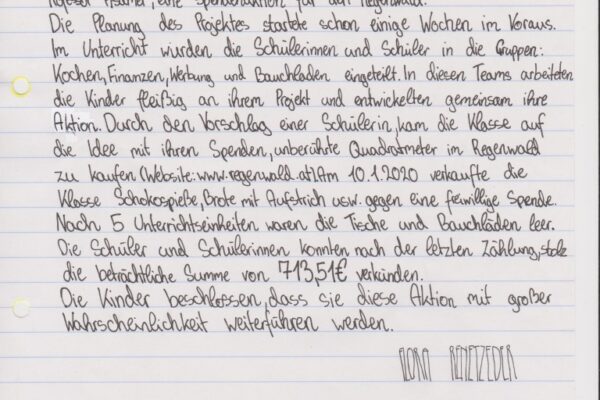 eine Spendenaktion für den Regenwald.
Die Planung des Projektes startete schon einige Wochen im Voraus.
Im Unterricht wurden die Schülerinnen und Schüler in die Gruppen:
Kochen, Finanzen, Werbung und Bauchläden eingeteilt. In diesen Teams arbeiteten
die Kinder fleißig an ihrem Projekt und entwickelten gemeinsam ihre
Aktion. Durch den Vorschlag einer Schülerin, kam die Klasse auf
die Idee mit ihren Spenden, unberührte Quadratmeter im Regenwald
zu kaufen (Website: www.regenwald.at) Am 10.1.2020 verkaufte die
Klasse Schokospieße, Brote mit Aufstrich usw. gegen eine freiwillige Spende.
Nach 5 Unterrichtseinheiten waren die Tische und Bauchläden leer.
Die Schüler und Schülerinnen konnten nach der letzten Zählung, stolz
die beträchtliche Summe von 713,51€ verkünden.
Die Kinder beschlossen, dass sie diese Aktion mit großer
Wahrscheinlichkeit weiterführen werden.